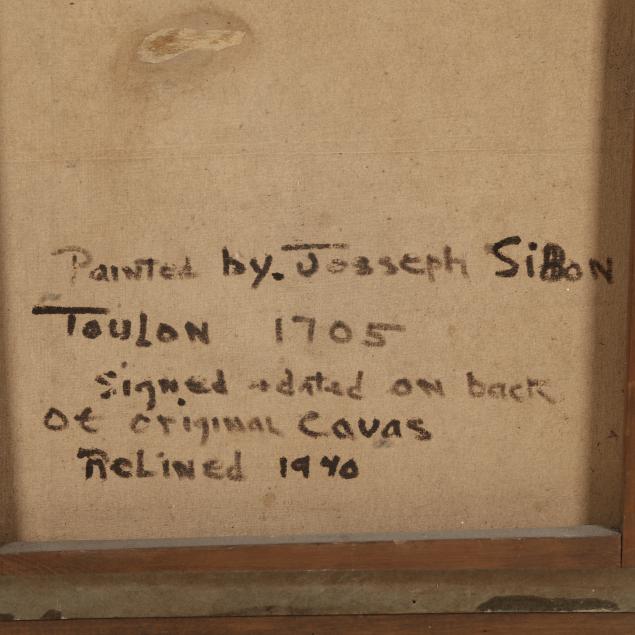 Painted by. Josseph SiBon
TOULON 1705
signed + dated on back
Of original Cavas
ReLined 1940